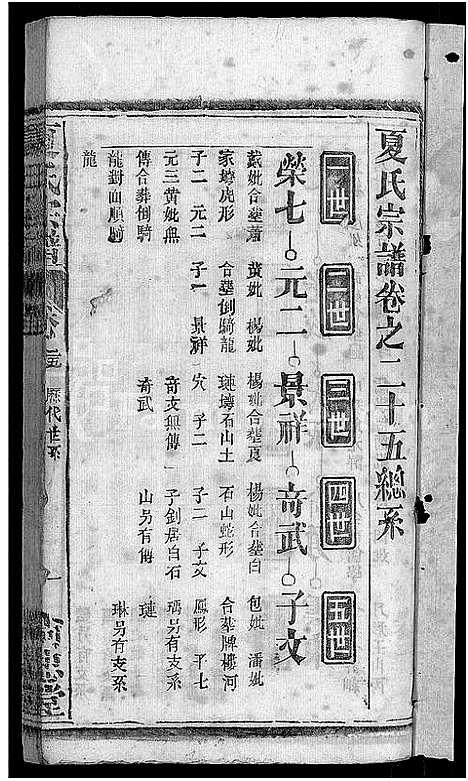 夏氏宗譜卷之二十五總系
一世 二世 三世 四世 五世
榮七 元二 景祥 奇武 子文
戴妣合墓蕭
家塝虎形
子二 元二
元三黄妣無
傳合葬倒騎
龍對面順騎
龍
黃妣 楊妣
合墓倒騎龍
子一 景祥
楊妣合墓夏
璉塝石山土
穴 子二
奇支無傳
奇武
楊妣合墓白
石山蛇形
子二 子文
子釗居白石
山另有傳
包妣 潘妣
合葬牌樓河
鳳形 子七
瑀另有支系
璉
琳另有支系
歷代世系